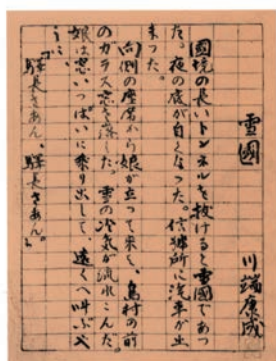 雪國
川端康成
國境の長いトンネルを抜けると雪國であっ
た。夜の底が白くなった。信號所に汽車が止
まった。
向側の座席から娘が立って来て、島村の前
のガラス窓を落した。雪の冷気が流れこんだ。
娘は窓いっぱいに乗り出して、遠くへ叫ぶや
うに、
「驛長さあん、驛長さあん。」